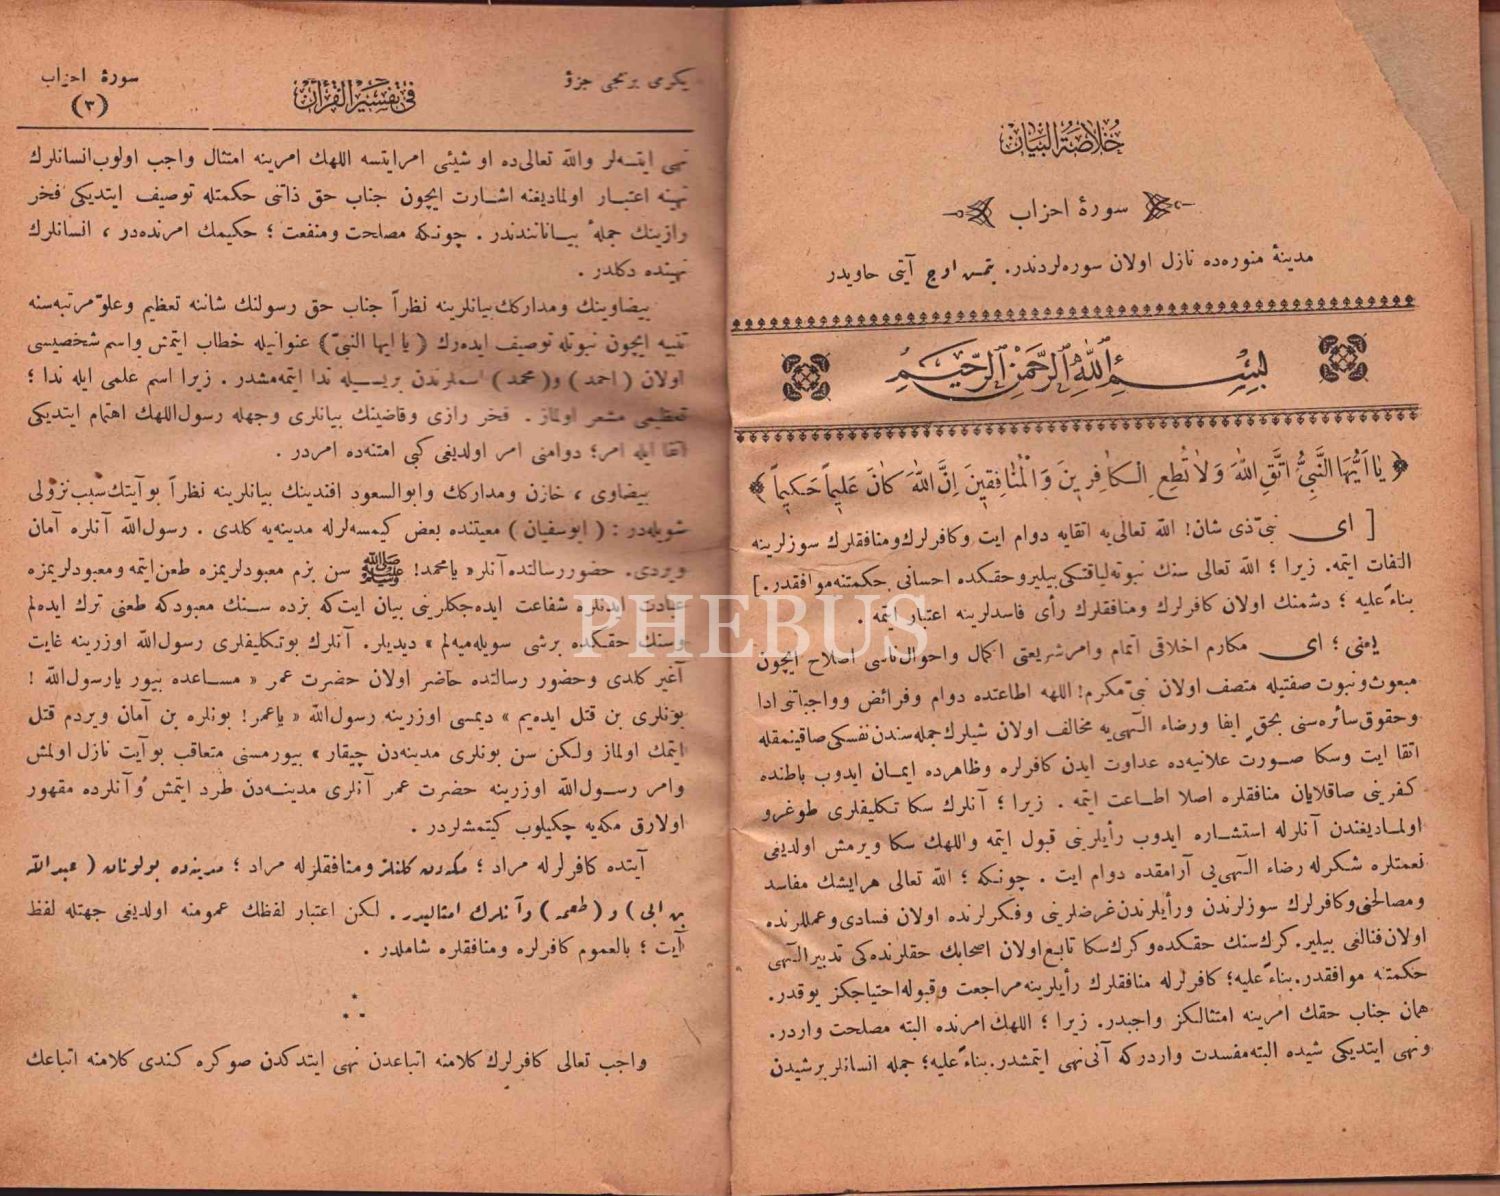 خلاصة البيان
سورۀ احزاب
مدينۀ منوره‌ده نازل اولان سوره‌لردندر. يتمس اوچ آيتى حاويدر
بسم الله الرحمن الرحيم
﴿ يَا اَيُّهَا النَّبِىُّ اتَّقِ اللّٰهَ وَلَا تُطِعِ الْكَافِرِينَ وَالْمُنَافِقِينَ اِنَّ اللّٰهَ كَانَ عَلِيماً حَكِيماً ﴾
[ اى نبىّ ذى شان! الله تعالى‌يه اتقايه دوام ايت و كافرلرك ومنافقلرك سوزلرينه
التفات ايتمه. زيرا ؛ الله تعالى سنك نبوته لياقتكى بيلير وحقكده احسانى حكمتنه موافقدر.]
بناءً عليه ؛ دشمنك اولان كافرلرك ومنافقلرك رأى فاسدلرينه اعتبار ايتمه .
يعنى ؛ اى مكارم اخلاقى اتمام وامر شريعتى اكمال واحوال ناسى اصلاح ايچون
مبعوث ونبوت صفتيله متصف اولان نبىّ مكرم! اللهه اطاعتده دوام وفرائض وواجباتنى ادا
وحقوق سائره‌سنى بحقٍ ايفا ورضاء الٓهى‌يه مخالف اولان شيلرك جمله‌سندن نفسكى صاقينمقله
اتقا ايت وسكا صورت علانيه‌ده عداوت ايدن كافرلره وظاهرده ايمان ايدوب باطنده
كفرينى صاقلايان منافقلره اصلا اطاعت ايتمه . زيرا ؛ آنلرك سكا تكليفلرى طوغرو
اولماديغندن آنلرله استشاره ايدوب رأيلرينى قبول ايتمه واللهك سكا ويرمش اولديغى
نعمتلره شكرله رضاء الٓهى‌يى آرامقده دوام ايت . چونكه ؛ الله تعالى هرايشك مفاسد
ومصالحنى وكافرلرك سوزلرندن ورأيلرندن غرضلرينى وفكرلرنده اولان فسادى وعمللرنده
اولان فنالغى بيلير. كرك سنك حقكده وكرك سكا تابع اولان اصحابك حقلرنده كى تدبير الٓهى
حكمتنه موافقدر. بناءً عليه؛ كافرلرله منافقلرك رأيلرينه مراجعت وقبوله احتياجكز يوقدر.
همان جناب حقك امرينه امتثالكز واجبدر. زيرا ؛ اللهك امرنده البته مصلحت واردر.
ونهى ايتديكى شيده البته مفسدت واردركه آنى نهى ايتمشدر. بناءً عليه؛ جمله انسانلر برشيدن
يكرمى برنجى جزؤ
فى تفسير القرآن
سورۀ احزاب
(٣)
نهى ايتسه‌لر والله تعالى‌ده او شيئى امر ايتسه اللهك امرينه امتثال واجب اولوب انسانلرك
نهينه اعتبار اولماديغنه اشارت ايچون جناب حق ذاتنى حكمتله توصيف ايتديكى فخر
رازينك جملۀ بياناتندندر . چونكه مصلحت ومنفعت ؛ حكيمك امرنده‌در ، انسانلرك
نهينده دكلدر .
بيضاوينك ومداركك بيانلرينه نظراً جناب حق رسولنك شاننه تعظيم وعلوّ مرتبه‌سنه
تنبيه ايچون نبوتله توصيف ايده‌رك ( يا ايها النبىّ ) عنوانيله خطاب ايتمش واسم شخصيسى
اولان ( احمد ) و( محمد ) اسملرندن بريسيله ندا ايتمه‌مشدر . زيرا اسم علمى ايله ندا ؛
تعظيمى مشعر اولماز . فخر رازى وقاضينك بيانلرى وجهله رسول اللهك اهتمام ايتديكى
اتقا ايله امر؛ دوامنى امر اولديغى كبى امتنه‌ده امردر .
بيضاوى ، خازن ومداركك وابوالسعود افندينك بيانلرينه نظراً بوآيتك سبب نزولى
شويله‌در : ( ابوسفيان ) معيتنده بعض كيمسه‌لرله مدينه‌يه كلدى . رسول الله آنلره آمان
ويردى. حضور رسالتده آنلر « يا محمد! ﷺ سن بزم معبودلريمزه طعن ايتمه ومعبودلريمزه
عبادت ايدنلره شفاعت ايده‌جكلرينى بيان ايت كه بزده سنك معبودكه طعنى ترك ايده‌لم
وسنك حقكده برشى سويله‌ميه‌لم » ديديلر. آنلرك بوتكليفلرى رسول الله اوزرينه غايت
آغير كلدى وحضور رسالتده حاضر اولان حضرت عمر « مساعده بيور يارسول الله !
بونلرى بن قتل ايده‌يم » ديمسى اوزرينه رسول الله « ياعمر! بونلره بن آمان ويردم قتل
ايتمك اولماز ولكن سن بونلرى مدينه‌دن چيقار » بيورمسنى متعاقب بوآيت نازل اولمش
وامر رسول الله اوزرينه حضرت عمر آنلرى مدينه‌دن طرد ايتمش وآنلرده مقهور
اولارق مكه‌يه چكيلوب كيتمشلردر .
آيتده كافرلرله مراد ؛ مكه‌دن كلنلر ومنافقلرله مراد ؛ مدينه‌ده بولونان ( عبدالله
بن ابى ) و ( طعمه ) وآنلرك امثاليدر. لكن اعتبار لفظك عمومنه اولديغى جهتله لفظ
آيت ؛ بالعموم كافرلره ومنافقلره شاملدر .
واجب تعالى كافرلرك كلامنه اتباعدن نهى ايتدكدن صوكره كندى كلامنه اتباعك
PHEBUS